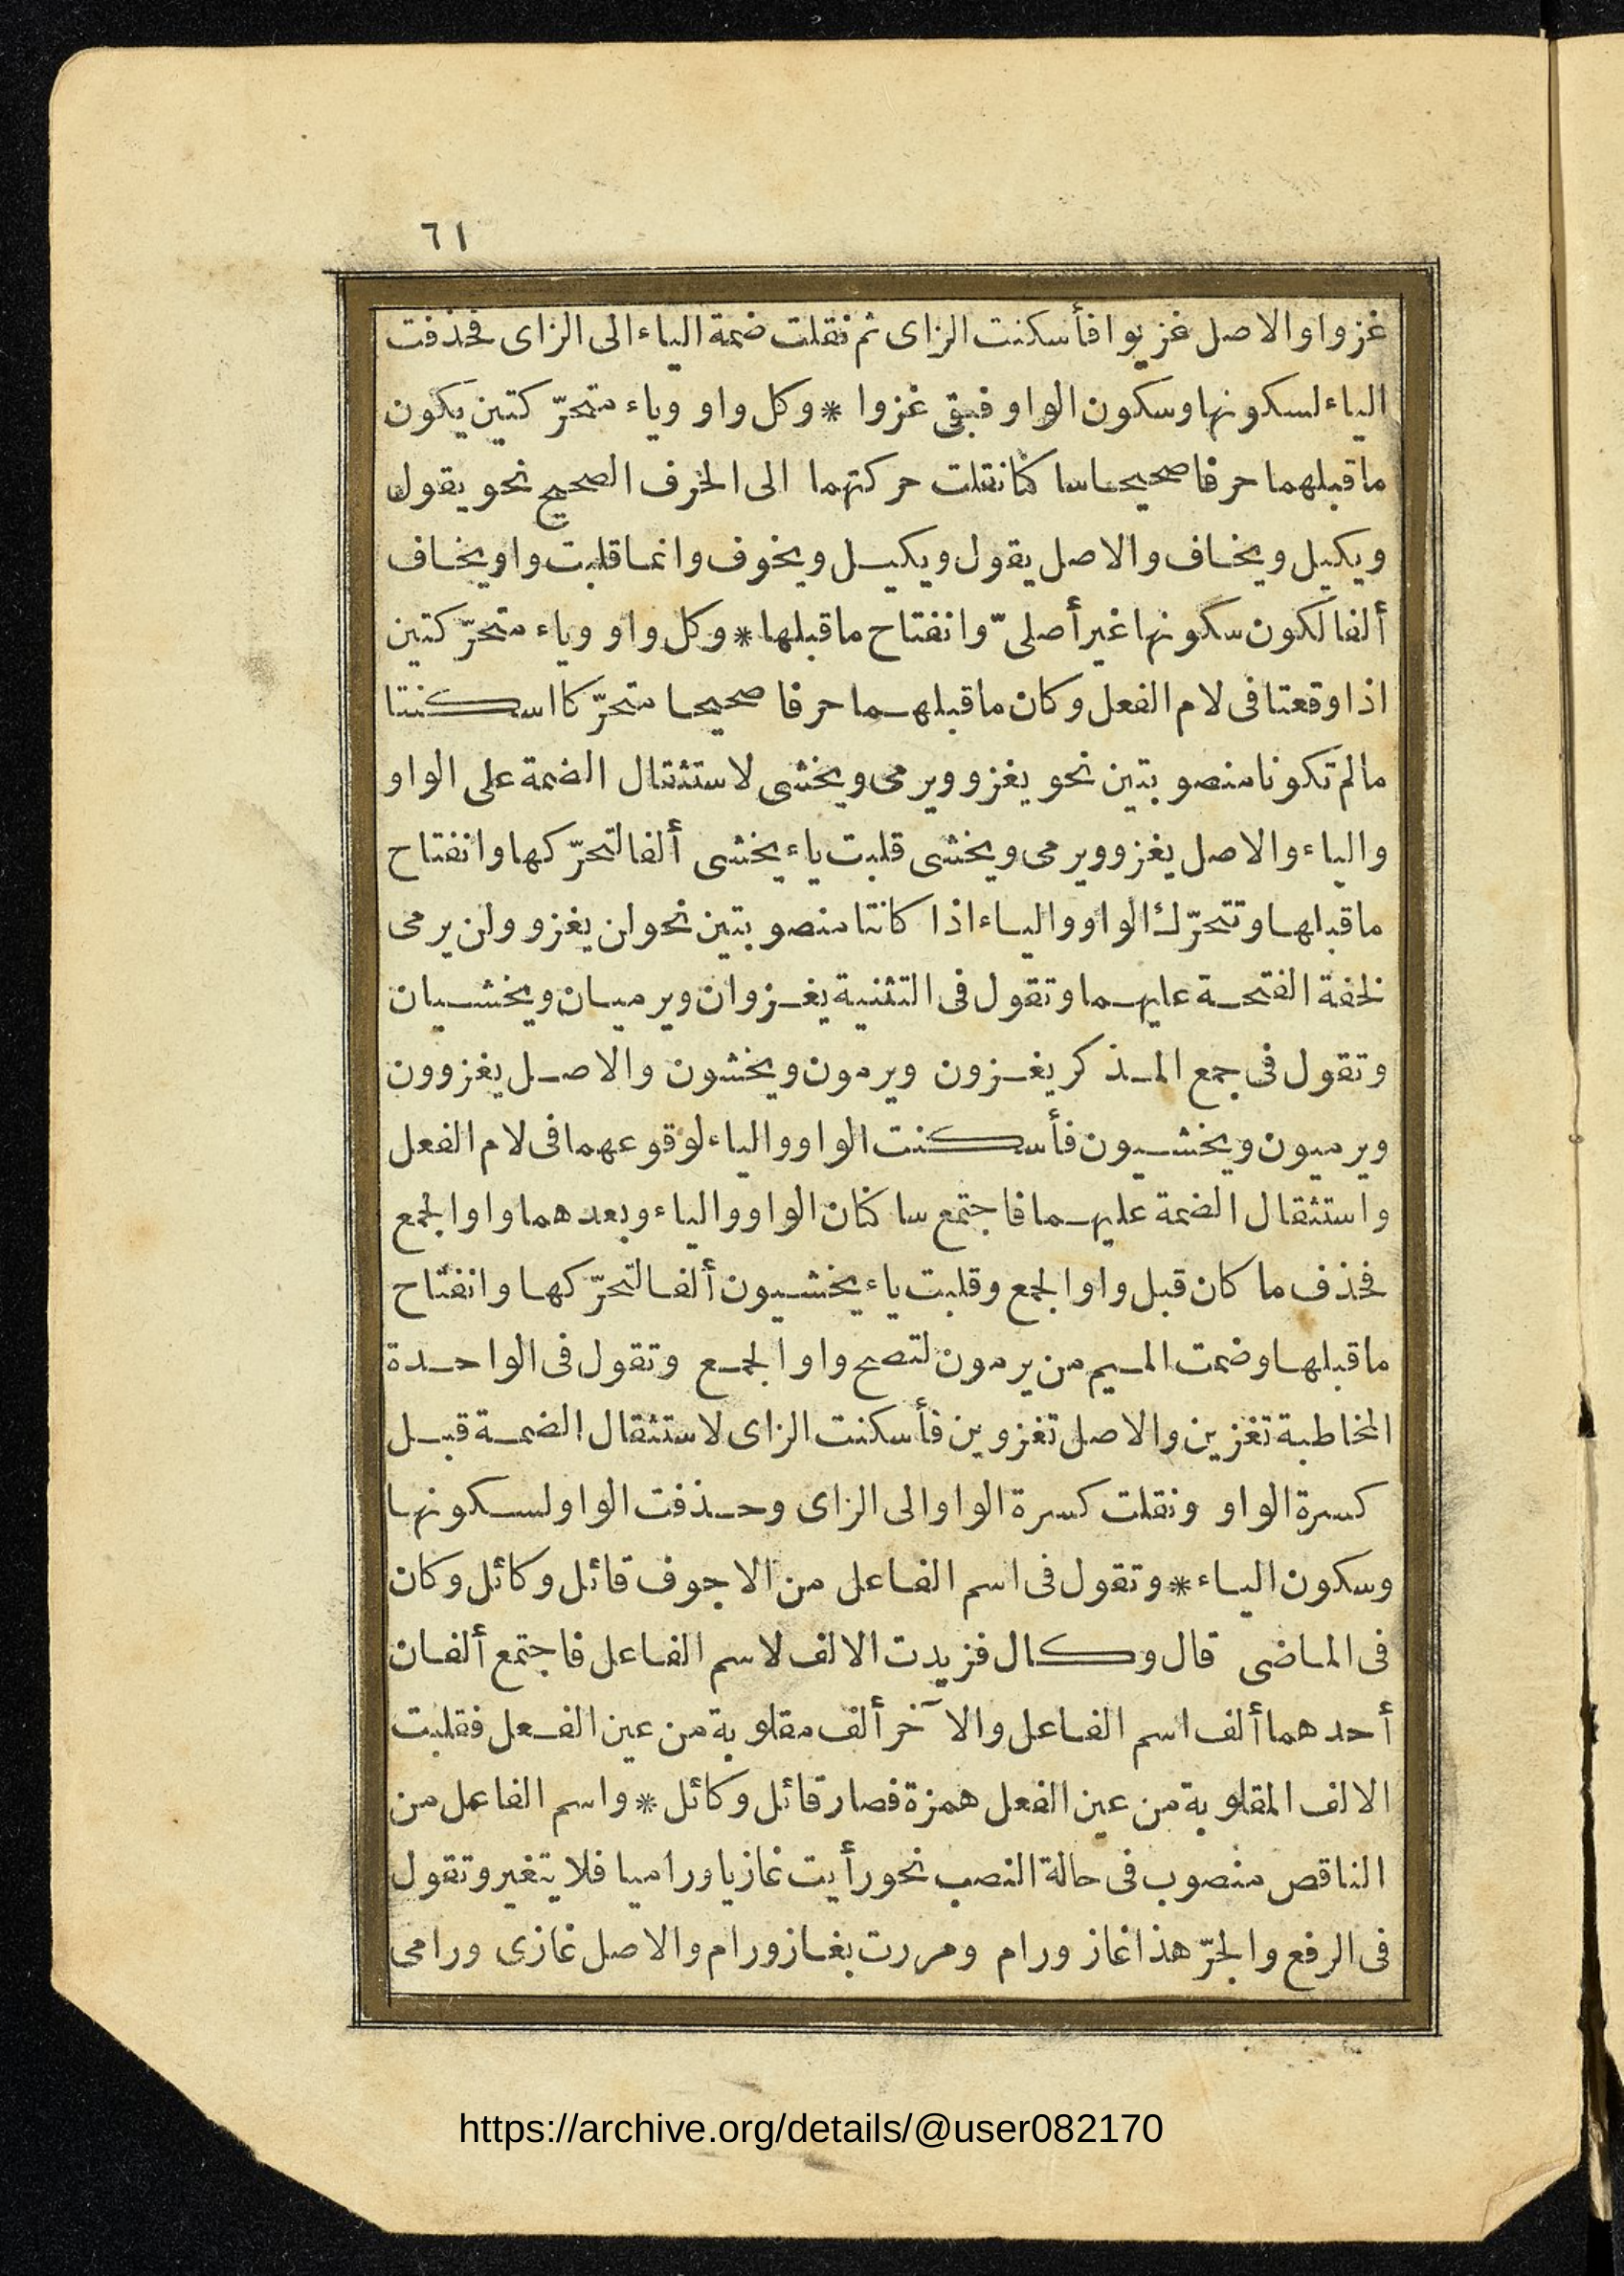 ٦١
غزوا والاصل غزيوا فأسكنت الزاى ثم نقلت ضمة الياء الى الزاى فحذفت
الياء لسكونها وسكون الواو فبقى غزوا * وكل واو وياء متحرّكتين يكون
ما قبلهما حرفا صحيحا ساكنا نقلت حركتهما الى الحرف الصحيح نحو يقول
ويكيل ويخاف والاصل يقول ويكيل ويخوف وانما قلبت واو يخاف
ألفا لكون سكونها غير أصلىّ وانفتاح ما قبلها * وكل واو وياء متحرّكتين
اذا وقعتا فى لام الفعل وكان ما قبلهما حرفا صحيحا متحرّكا اسكنتا
مالم تكونا منصوبتين نحو يغزو ويرمى ويخشى لاستثقال الضمة على الواو
والياء والاصل يغزو ويرمى ويخشى قلبت ياء يخشى ألفا لتحرّكها وانفتاح
ما قبلها وتتحرّك الواو والياء اذا كانتا منصوبتين نحو لن يغزو ولن يرمى
لخفة الفتحة عليهما وتقول فى التثنية يغزوان ويرميان ويخشيان
وتقول فى جمع المذكر يغزون ويرمون ويخشون والاصل يغزوون
ويرميون ويخشيون فأسكنت الواو والياء لوقوعهما فى لام الفعل
واستثقال الضمة عليهما فاجتمع ساكنان الواو والياء وبعدهما واو الجمع
فحذف ما كان قبل واو الجمع وقلبت ياء يخشيون ألفا لتحرّكها وانفتاح
ما قبلها وضمت الميم من يرمون لتصح واو الجمع وتقول فى الواحدة
المخاطبة تغزين والاصل تغزوين فأسكنت الزاى لاستثقال الضمة قبل
كسرة الواو ونقلت كسرة الواو الى الزاى وحذفت الواو لسكونها
وسكون الياء * وتقول فى اسم الفاعل من الاجوف قائل وكائل وكان
فى الماضى قال وكال فزيدت الالف لاسم الفاعل فاجتمع ألفان
أحدهما ألف اسم الفاعل والآخر ألف مقلوبة من عين الفعل فقلبت
الالف المقلوبة من عين الفعل همزة فصار قائل وكائل * واسم الفاعل من
الناقص منصوب فى حالة النصب نحو رأيت غازيا وراميا فلا يتغير وتقول
فى الرفع والجرّ هذا غاز ورام ومررت بغاز ورام والاصل غازى ورامى
https://archive.org/details/@user082170